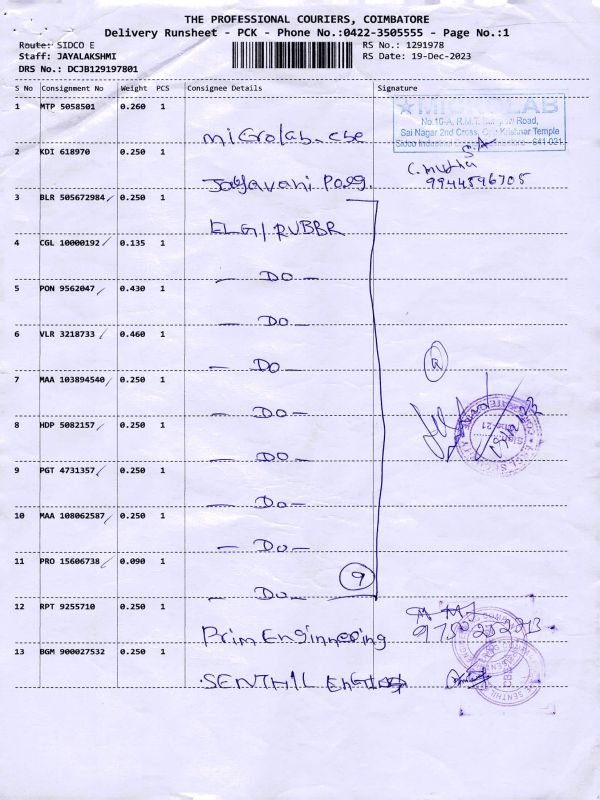 THE PROFESSIONAL COURIERS, COIMBATORE
Delivery Runsheet - PCK - Phone No.:0422-3505555 - Page No.:1
Route: SIDCO E
RS No.: 1291978
Staff: JAYALAKSHMI
RS Date: 19-Dec-2023
DRS No.: DCJB129197801
S No Consignment No Weight PCS Consignee Details Signature
1 MTP 5058501 0.260 1
LAB
No.10-A, R.M.T. Road,
Sai Nagar 2nd Cross, Temple
Sidco 641 021
microlab. cbe
2 KDI 618970 0.250 1
9944596705
3 BLR 505672984 0.250 1
ELGI RUBBR
4 CGL 10000192 0.135 1
— Do —
5 PON 9562047 0.430 1
— Do —
6 VLR 3218733 0.460 1
— Do —
7 MAA 103894540 0.250 1
— Do —
8 HDP 5082157 0.250 1
— Do —
9 PGT 4731357 0.250 1
— Do —
10 MAA 108062587 0.250 1
— Do —
11 PRO 15606738 0.090 1
9
— Do —
12 RPT 9255710 0.250 1
Prim Enginnering
13 BGM 900027532 0.250 1
SENTHIL